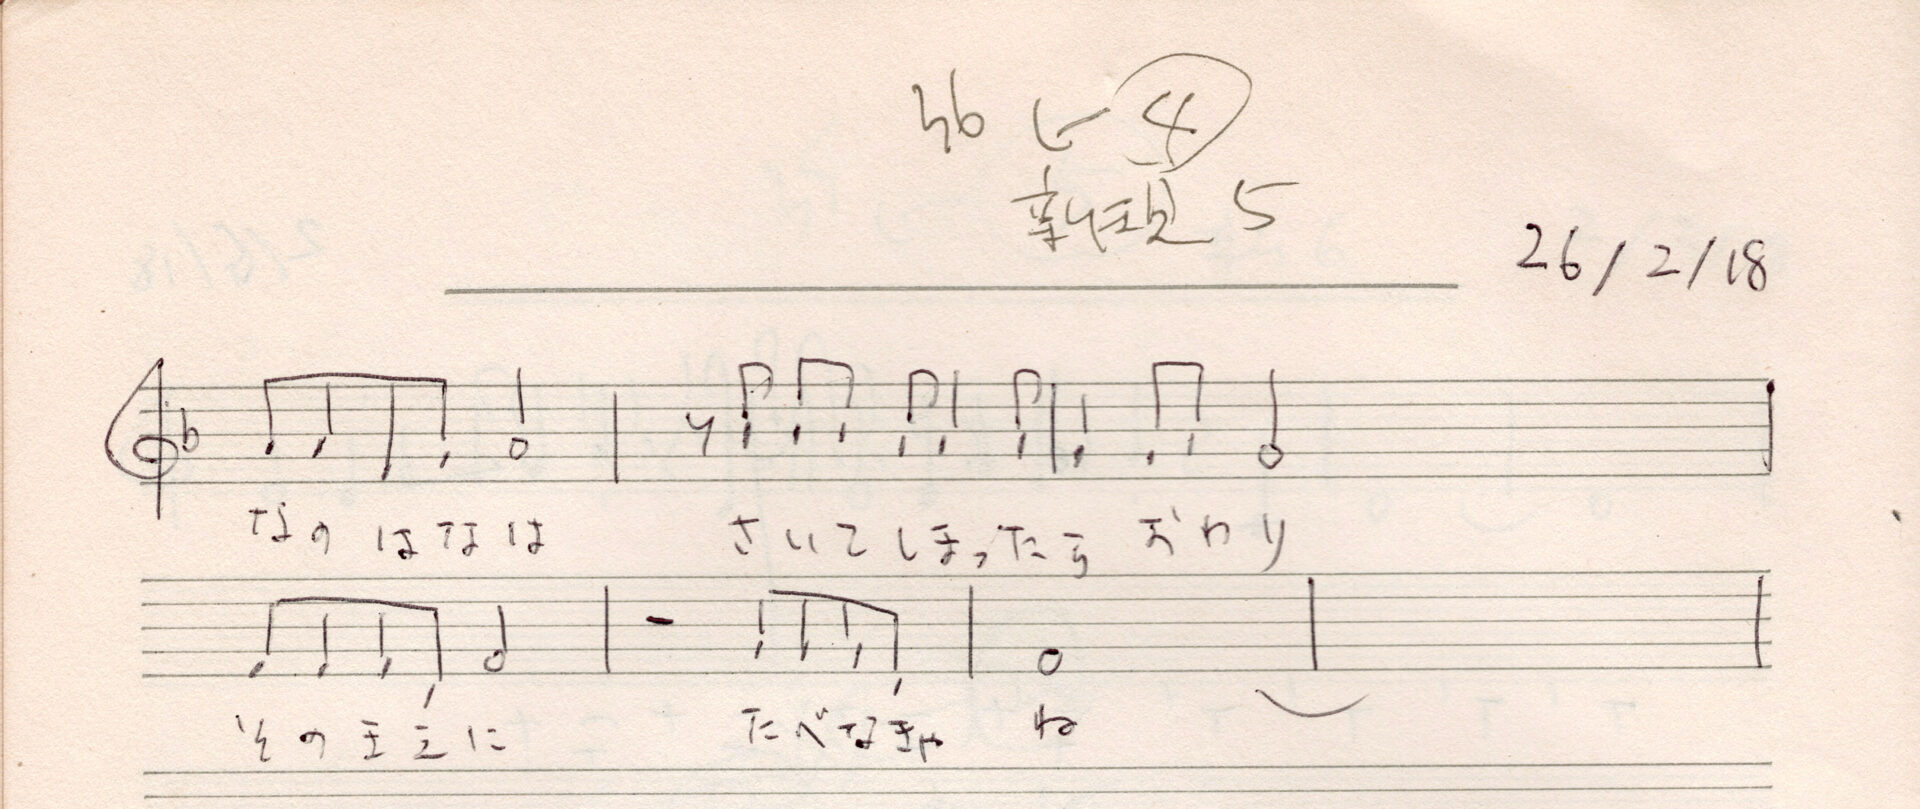 46 ← 4
新現 5
26/2/18
なのはなは さいてしまったら おわり
そのまえに たべなきゃ ね